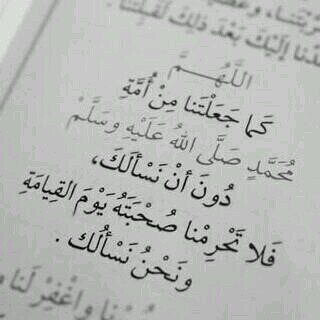 بَعْدَ ذَلِكَ لَقِيتَنَا.
اللَّهُمَّ
كَمَا جَعَلْتَنَا مِنْ أُمَّةِ
مُحَمَّدٍ صَلَّى اللهُ عَلَيْهِ وَسَلَّمْ
دُونَ أَنْ نَسْأَلَكَ،
فَلَا تَحْرِمْنَا صُحْبَتَهُ يَوْمَ القِيَامَةِ
وَنَحْنُ نَسْأَلُكَ.
وَاغْفِرْ لَنَا